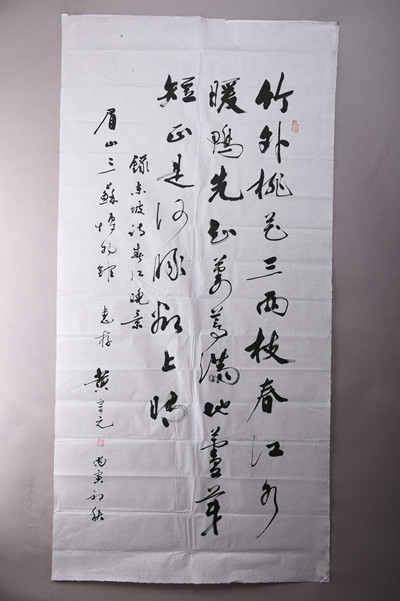 竹外桃花三两枝春江水
暖鸭先知蒌蒿满地芦芽
短正是河豚欲上时
录东坡诗春江晚景
眉山三苏博物馆 惠存 黄宗元 丙寅初秋